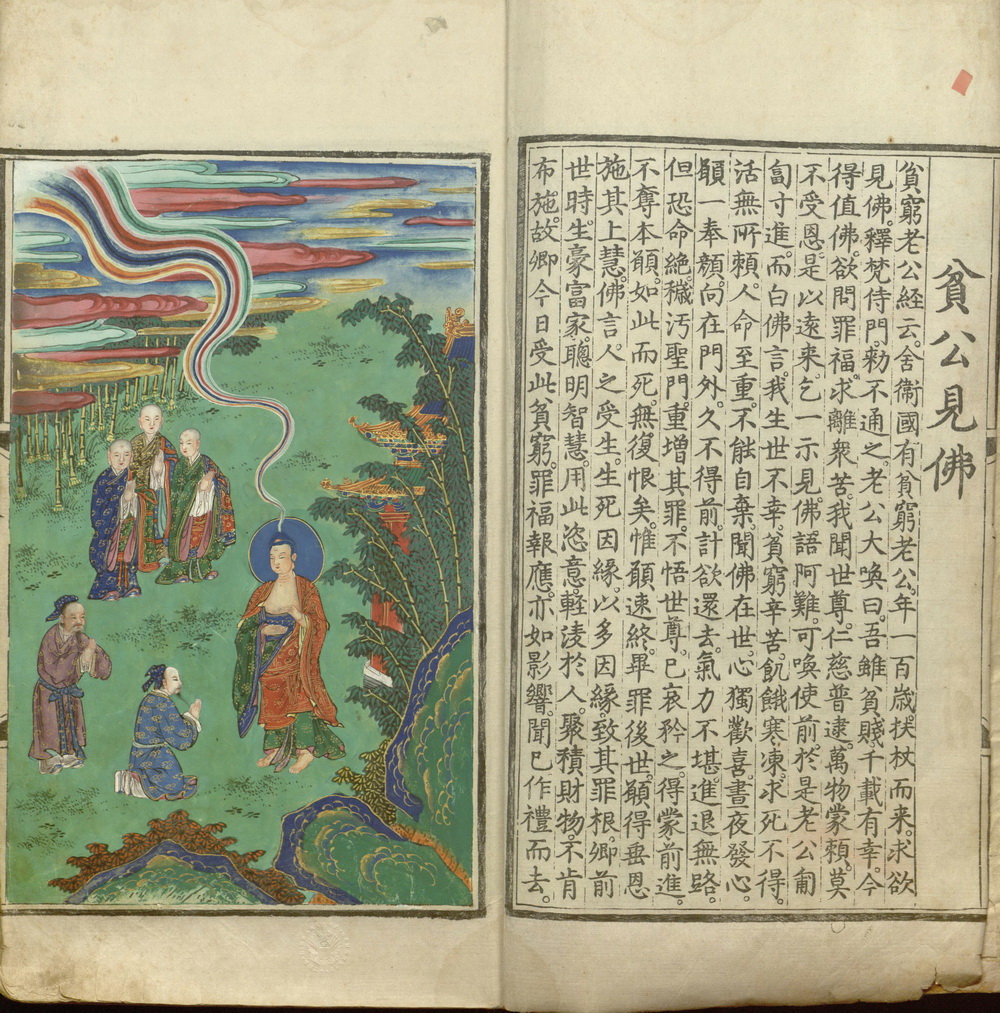 貧公見佛
貧窮老公経云。舍衞國有貧窮老公。年一百歳。扶杖而来。求欲
見佛。釋梵侍門。勑不通之。老公大喚曰。吾雖貧賤。千載有幸。今
得值佛。欲問罪福。求離衆苦。我聞世尊。仁慈普逮。萬物蒙賴。莫
不受恩。是以遠来。乞一示見。佛語阿難。可喚使前。於是老公匍
匐寸進。而白佛言。我生世不幸。貧窮辛苦。飢餓寒凍。求死不得。
活無所賴。人命至重。不能自棄。聞佛在世。心獨歡喜。晝夜發心。
願一奉顔。向在門外。久不得前。計欲還去。氣力不堪。進退無路。
但恐命絶。穢汚聖門。重增其罪。不悟世尊。已哀矜之。得蒙前進。
不奪本願。如此而死。無復恨矣。惟願速終。畢罪後世。願得垂恩
施其上慧。佛言。人之受生。生死因緣。以多因緣致其罪根。卿前
世時。生豪富家。聰明智慧。用此恣意。輕淩於人。聚積財物。不肯
布施。故卿今日受此貧窮。罪福報應。亦如影響。聞已作禮而去。